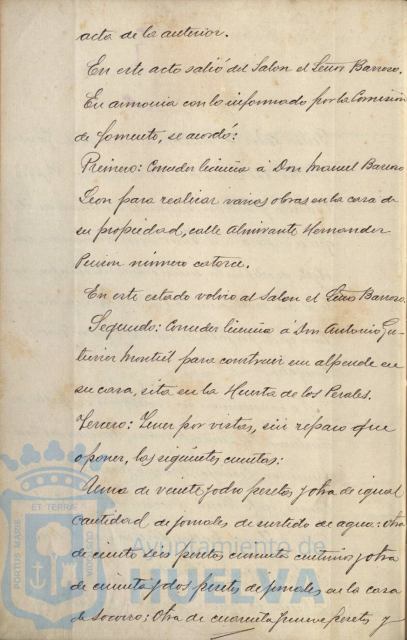 acta de la anterior.
En este acto salió del Salon el Señor Barroso.
En armonia con lo informado por la Comisión
de Fomento, se acordó:
Primero: Conceder licencia á Don Manuel Barroso
Leon para realizar varias obras en la casa de
su propiedad, calle Almirante Hernandez
Pinzon número catorce.
En este estado volvio al Salon el Señor Barroso.
Segundo: Conceder licencia á Don Antonio Gu-
tierrez Montiel para construir un alpende en
su casa, sita en la Huerta de los Perales.
Tercero: Tener por vistas, sin reparo que
oponer, las siguientes cuentas:
Una de veinte y ocho pesetas y otra de igual
cantidad de jornales de surtido de agua: otra
de ciento seis pesetas cincuenta centimos y otra
de cincuenta y dos pesetas de jornales en la casa
de socorro; Otra de cuarenta y nueve pesetas y
PORTUS MARIS
ET TERRAE
CUSTODIA
Ayuntamiento de
HUELVA